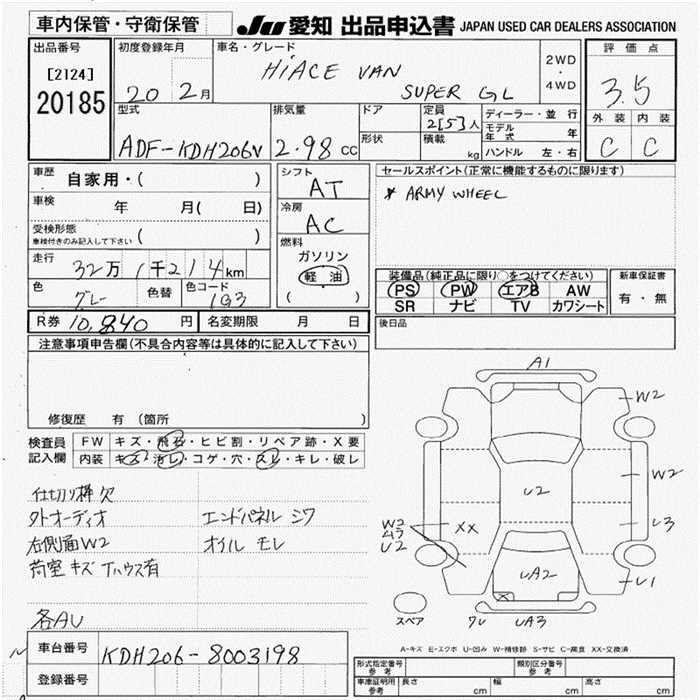 車内保管・守衛保管
JU 愛知 出品申込書 JAPAN USED CAR DEALERS ASSOCIATION
出品番号
[2124]
20185
初度登録年月
20 2月
車名・グレード
HIACE VAN
SUPER GL
2WD
・
4WD
評価点
3.5
外装 内装
C C
型式
ADF-KDH206V
排気量
2.98 cc
ドア
形状
定員
2[5]人
積載
kg
ディーラー・並行
モデル年式 年
ハンドル 左・右
車歴 自家用・( )
車検 年 月( 日)
受検形態
車検付きのみ記入して下さい ( )
走行 32万1千214km
色 グレー 色替 色コード 1G3
シフト
AT
冷房
AC
燃料
ガソリン
軽油
( )
セールスポイント(正常に機能するものに限ります)
* ARMY WHEEL
装備品(純正品に限り○をつけてください)
PS PW エアB AW
SR ナビ TV カワシート
新車保証書
有・無
R券 10,840 円 名変期限 月 日
後日品
注意事項申告欄(不具合内容等は具体的に記入して下さい)
修復歴 有(箇所 )
検査員
記入欄
FW キズ・飛石・ヒビ割・リペア跡・X要
内装 キズ・汚レ・コゲ・穴・スレ・キレ・破レ
仕切り棒 欠
外オーディオ エンドパネル シワ
右側面W2 オイル モレ
荷室 キズ
各AU
A1
W2
W2
U2
U3
W2
ムラ
U2
XX
UA2
U1
スペア
UA3
A-キズ E-エクボ U-凹み W-補修跡 S-サビ C-腐食 XX-交換済
車台番号 KDH206-8003198
登録番号
形式指定番号
参考
類別区分番号
参考
車庫証明用
参考
長さ cm 幅 cm 高さ cm